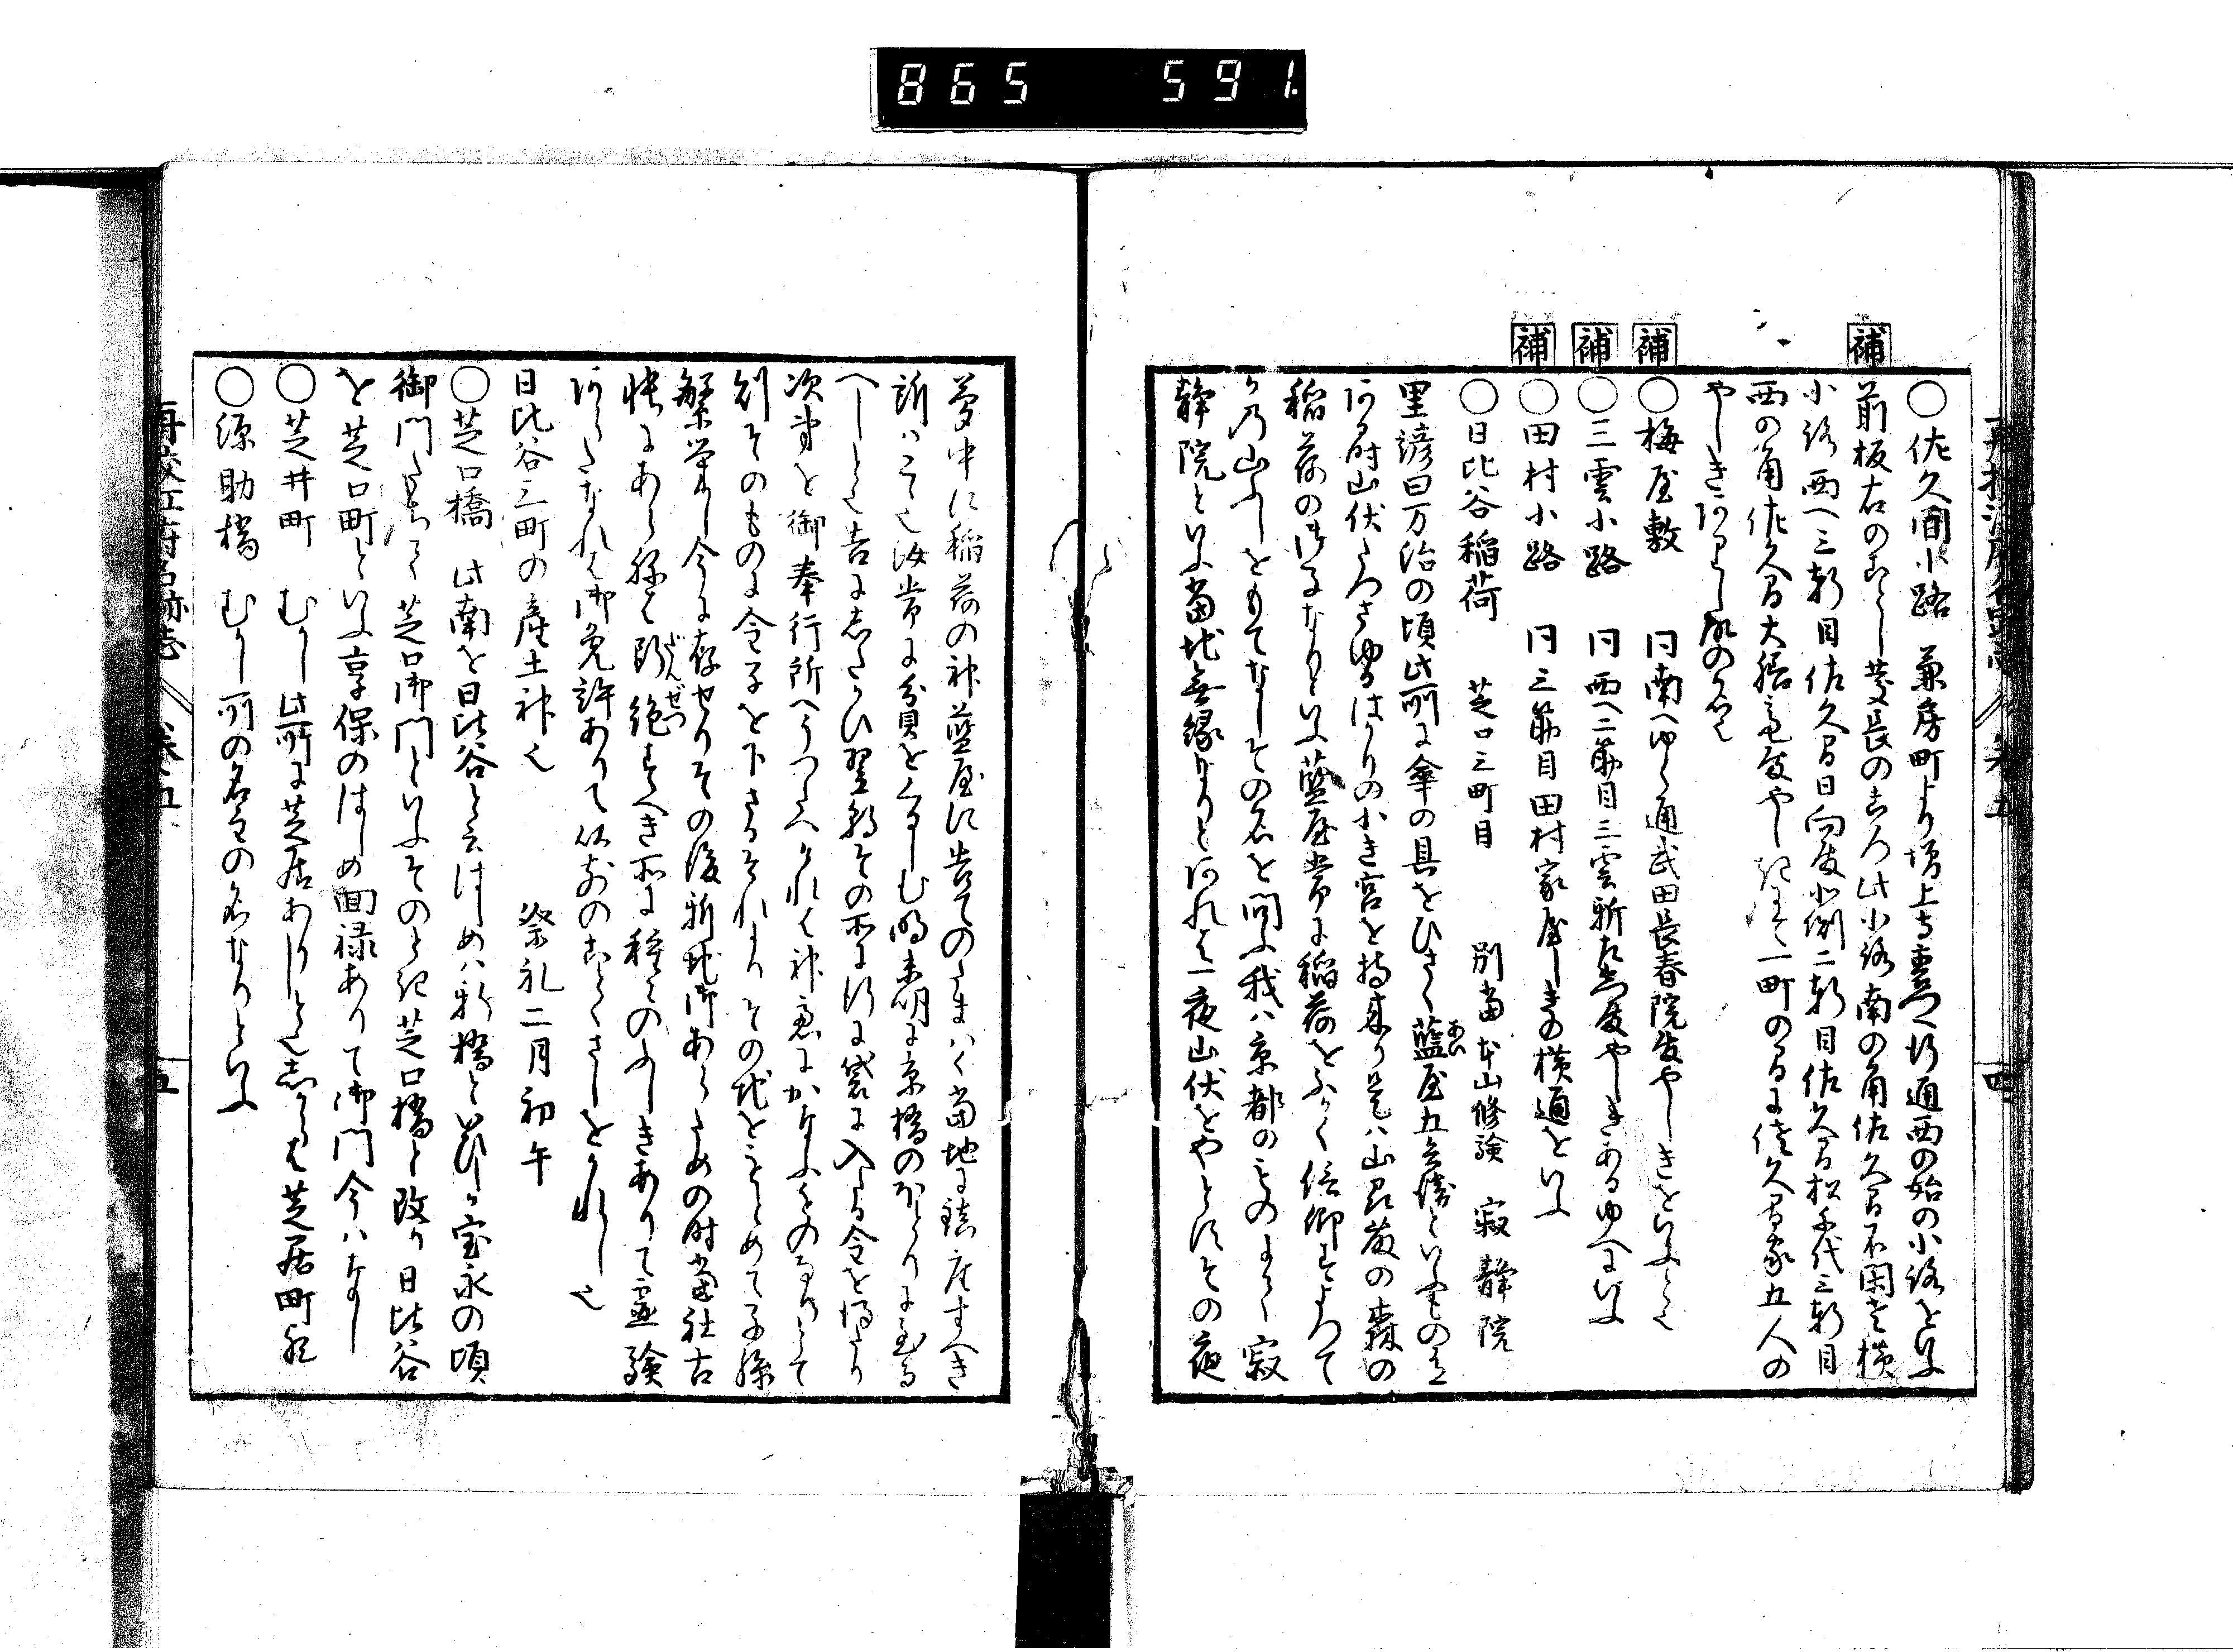 865 591
○佐久間小路 兼房町より増上寺裏へ行通西の始の小路をいふ
補 前板右のことし慶長のころ此小路南の角佐久間不閑老横
小路西へ三軒目佐久間日向殿北側二軒目佐久間松千代三軒目
西の角佐久間大膳亮殿やしき 一町の間に佐久間家五人の
やしきありし故の名也
補 ○梅屋敷 同南へゆく通武田長春院殿やしきをいふと也
補 ○三雲小路 同西へ二筋目三雲新左衛殿やしきあるゆへにいふ
補 ○田村小路 同三筋目田村家屋しきの横通をいふ
○日比谷稲荷 芝口三町目 別当本山修験 寂静院
里諺曰万治の頃此所に傘の具をひさく藍屋五兵衛といふもの有
ある時山伏たつさゆるはかりの小き宮を持来り是ハ山 の森の
稲荷の なりといふ藍屋常に稲荷をふかく信仰すよつて
かの山ふしをもてなしその名を問ふ我ハ京都のものにして寂
静院といふ当地無縁なりとあれは一夜山伏をやとすその夜
夢中に稲荷の神藍屋に告てのたまハく当地に鎮座すへき
所ハこゝ也汝常に分貝をくるしむ明未明に京橋のほとりに至る
へしと也告にしたかひ翌朝その所に行に袋に入たる金を得たり
次第を御奉行所へうつたへけれは神慮にかなふものなりとて
則そのものに金子を下さるそれよりその地をもとめて子孫
繁栄し今に存せりその後新地御あらためのの時当社古
帳にあらねは断絶すへき所に種々のふしきありて霊験
あらたなれは御免許ありて以前のことくさしをかれし也
日比谷三町の産土神也 祭礼二月初午
○芝口橋 此南を日比谷と云はしめハ新橋といひしか宝永の頃
御門たちて芝口御門といふそのとき芝口橋と改り日比谷
を芝口町といふ享保のはしめ回禄ありて御門今ハなし
○芝井町 むかし此所に芝居ありしと也しからは芝居町歟
○源助橋 むかし所の名主の名なりといふ
再校江府名跡志 巻五 五